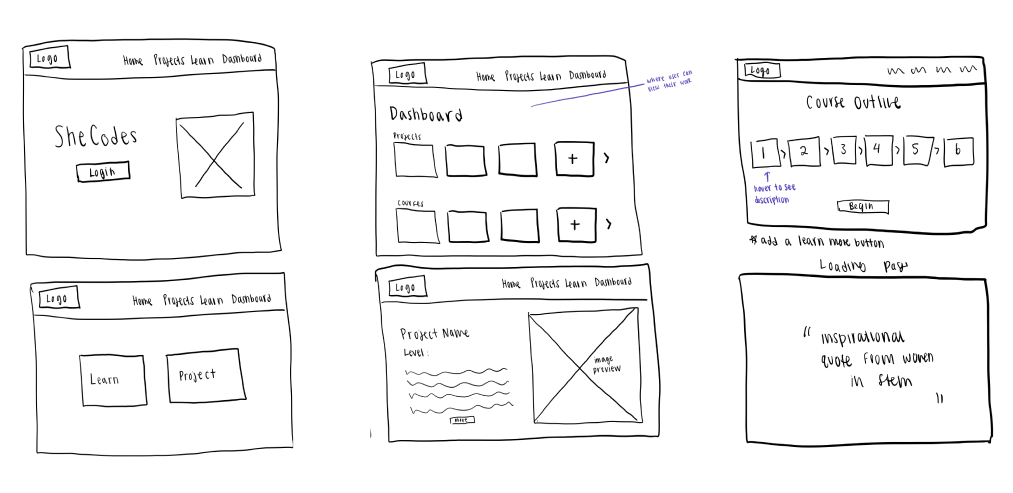 Logo
Home Projects Learn Dashboard
SheCodes
Login
Logo
Home Projects Learn Dashboard
Learn
Project
Logo
Home Projects Learn Dashboard
where user can
view their work
Dashboard
Projects
+ >
Courses
+ >
Logo
Home Projects Learn Dashboard
Project Name
Level:
image
preview
more
Logo
Course Outline
1 > 2 > 3 > 4 > 5 > 6
hover to see
description
Begin
* add a learn more button
Loading page
"inspirational
quote from women
in stem
"